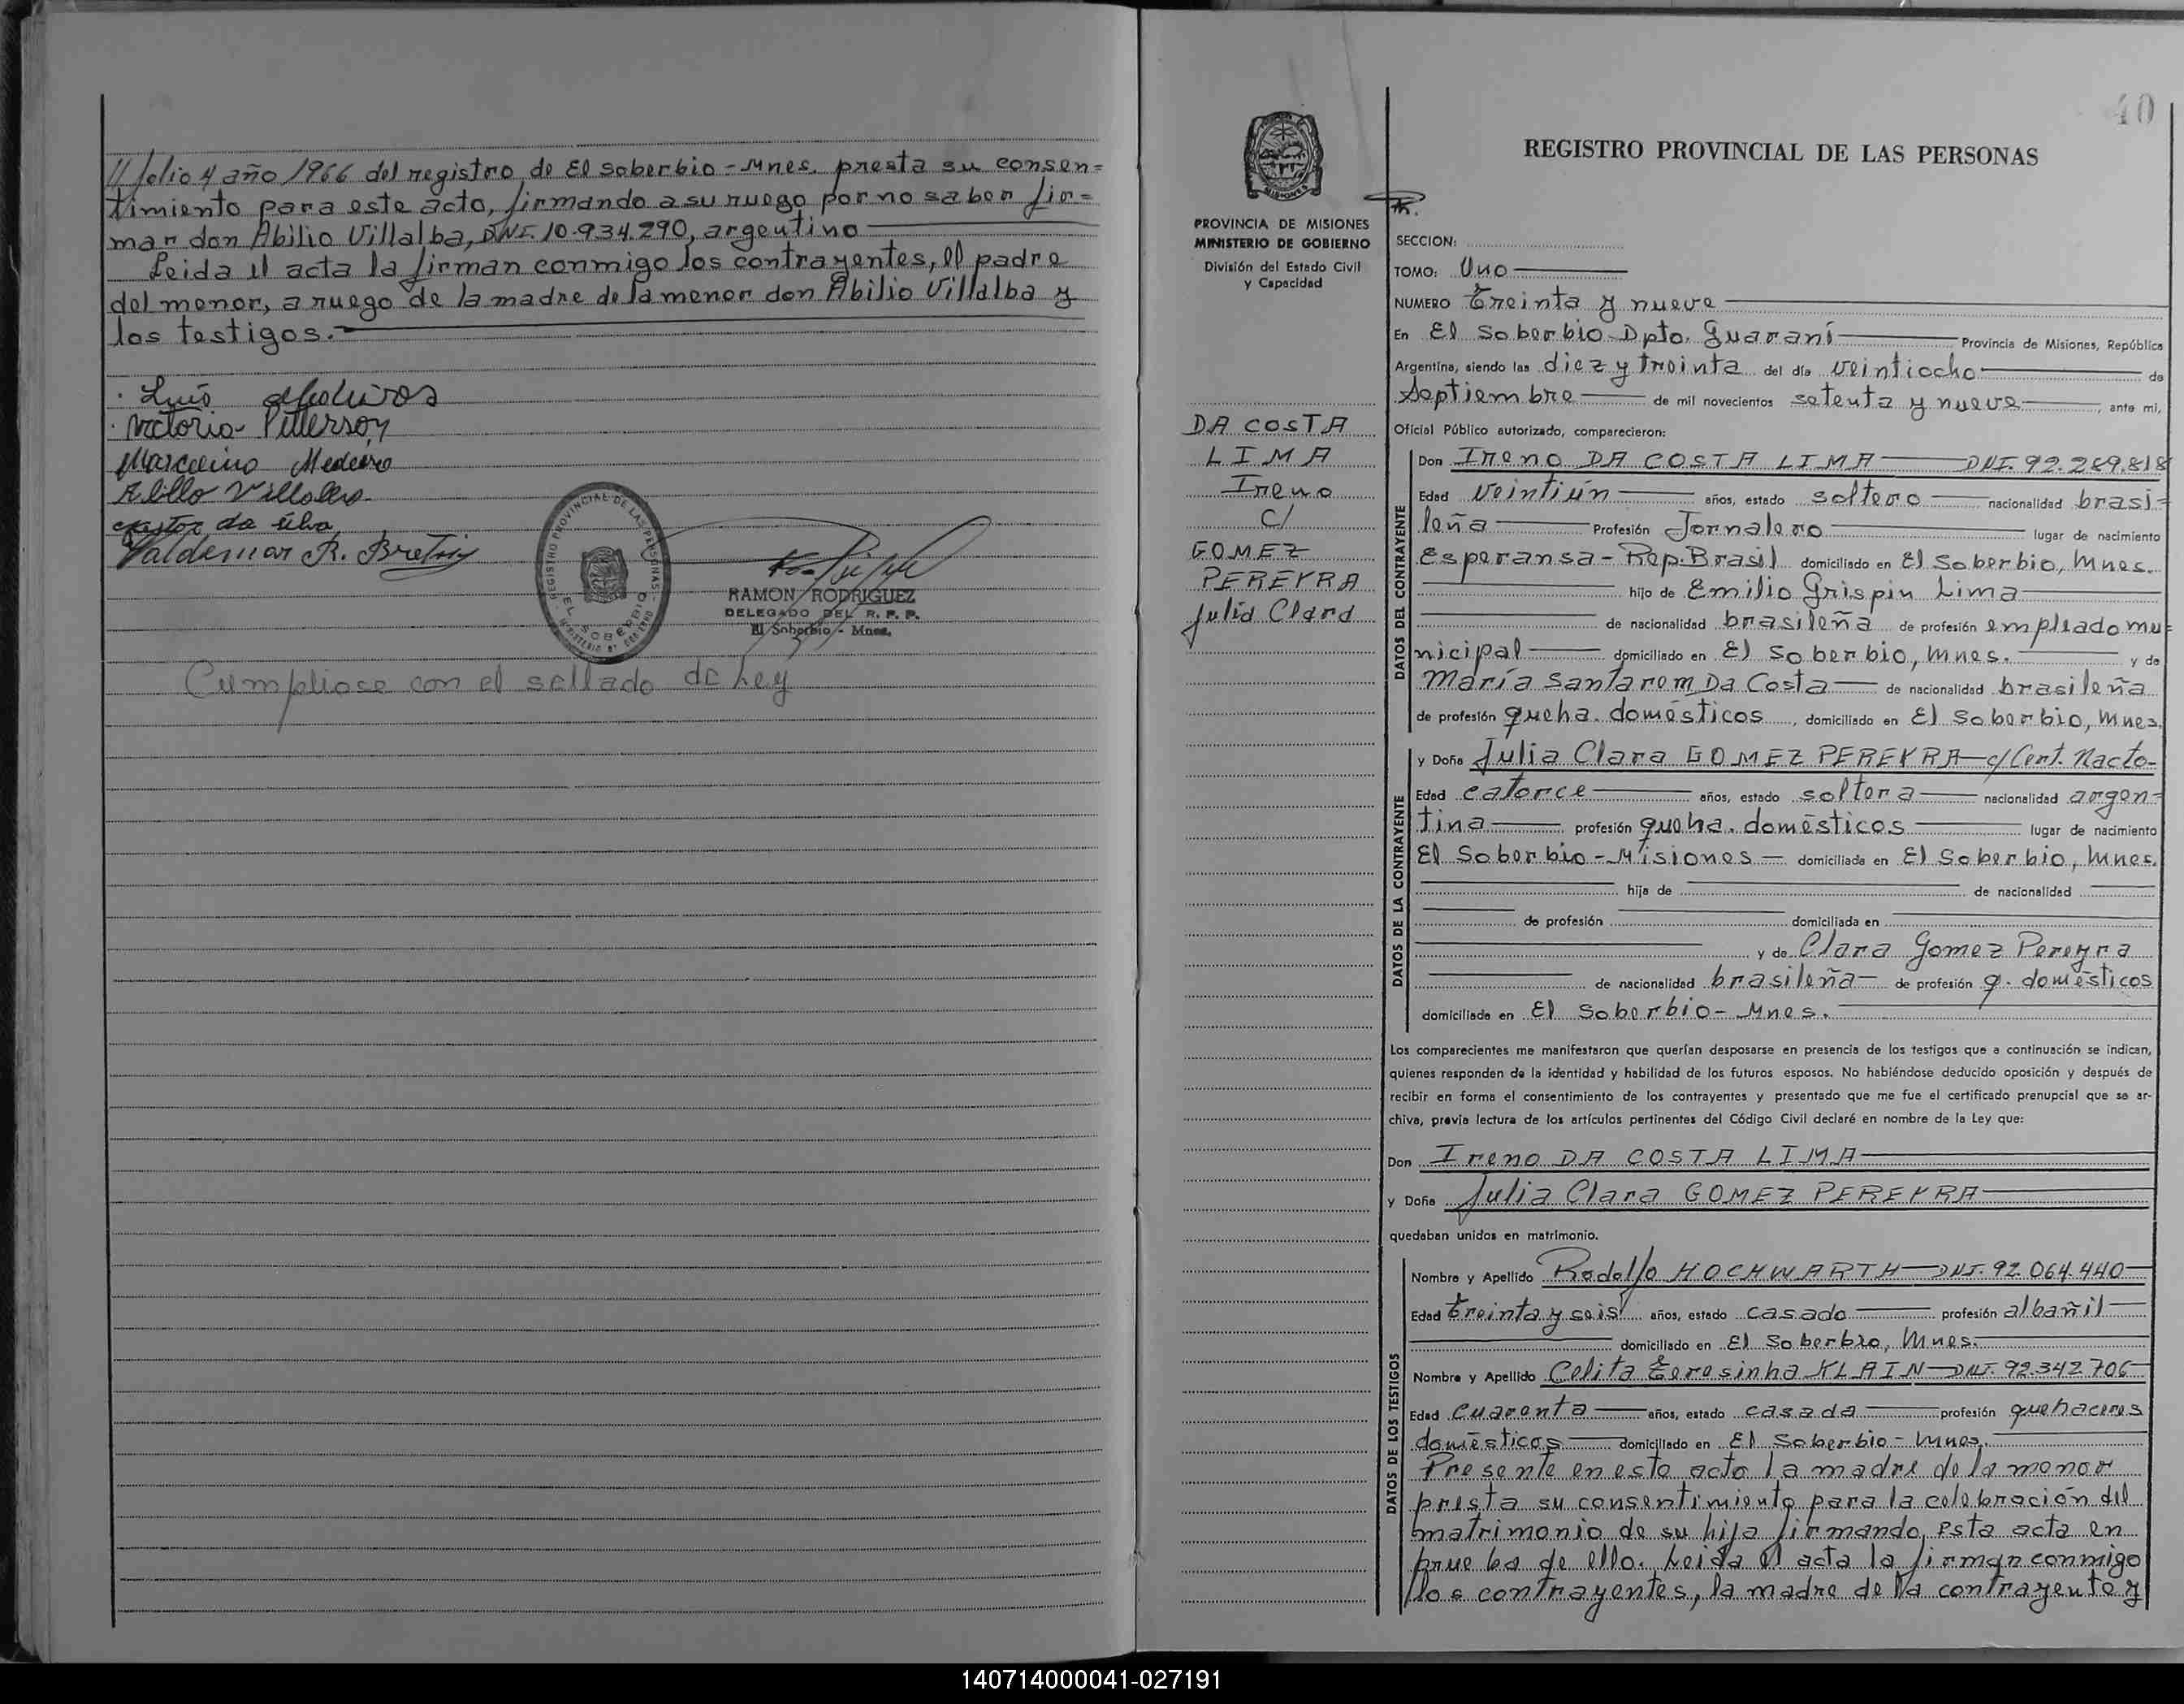 11 folio 4 año 1966 del registro de El Soberbio - Mnes. presta su consen=
timiento para este acto, firmando a su ruego por no saber fir=
mar don Abilio Villalba, DNI. 10.934.290, argentino
Leida el acta la firman conmigo los contrayentes, el padre
del menor, a ruego de la madre de la menor don Abilio Villalba y
los testigos.-
Luis
Victoria Pitterson
Marcelino Medeiro
da silva
Valdemar R.
REGISTRO PROVINCIAL DE LAS PERSONAS
EL SOBERBIO
RAMON RODRIGUEZ
DELEGADO DEL R. P. P.
El Soberbio - Mnes.
Cumpliose con el sellado de Ley
40
REGISTRO PROVINCIAL DE LAS PERSONAS
MISIONES
PROVINCIA DE MISIONES
MINISTERIO DE GOBIERNO
División del Estado Civil
y Capacidad
DA COSTA
LIMA
Ireno
C/
GOMEZ
PEREYRA
Julia Clara
SECCION:
TOMO: Uno
NUMERO Treinta y nueve
En El Soberbio Dpto. Guaraní Provincia de Misiones, República
Argentina, siendo las diez y treinta del día veintiocho de
Septiembre de mil novecientos setenta y nueve, ante mi,
Oficial Público autorizado, comparecieron:
DATOS DEL CONTRAYENTE
Don Ireno DA COSTA LIMA DNI. 92.289.818
Edad veintiún años, estado soltero nacionalidad brasi=
leña Profesión Jornalero lugar de nacimiento
Esperansa - Rep. Brasil domiciliado en El Soberbio, Mnes.
hijo de Emilio Grispin Lima
de nacionalidad brasileña de profesión empleado mu=
nicipal domiciliado en El Soberbio, Mnes. y de
María Santarem Da Costa de nacionalidad brasileña
de profesión queha. domésticos, domiciliado en El Soberbio, Mnes.
DATOS DE LA CONTRAYENTE
y Doña Julia Clara GOMEZ PEREYRA c/Cert. Nacto-
Edad catorce años, estado soltera nacionalidad argen=
tina profesión queha. domésticos lugar de nacimiento
El Soberbio - Misiones domiciliada en El Soberbio, Mnes.
hija de de nacionalidad
de profesión domiciliada en
y de Clara Gomez Pereyra
de nacionalidad brasileña de profesión q. domésticos
domiciliada en El Soberbio - Mnes.
Los comparecientes me manifestaron que querían desposarse en presencia de los testigos que a continuación se indican,
quienes responden de la identidad y habilidad de los futuros esposos. No habiéndose deducido oposición y después de
recibir en forma el consentimiento de los contrayentes y presentado que me fue el certificado prenupcial que se ar-
chiva, previa lectura de los artículos pertinentes del Código Civil declaré en nombre de la Ley que:
Don Ireno DA COSTA LIMA
y Doña Julia Clara GOMEZ PEREYRA
quedaban unidos en matrimonio.
DATOS DE LOS TESTIGOS
Nombre y Apellido Rodolfo HOCHWARTH DNI. 92.064.440
Edad treinta y seis años, estado casado profesión albañil
domiciliado en El Soberbio, Mnes.
Nombre y Apellido Celita Teresinha KLAIN DNI. 92.342.706
Edad cuarenta años, estado casada profesión quehaceres
domésticos domiciliado en El Soberbio - Mnes.
Presente en este acto la madre de la menor
presta su consentimiento para la celebración del
matrimonio de su hija firmando esta acta en
prueba de ello. Leida el acta la firman conmigo
los contrayentes, la madre de la contrayente y
140714000041-027191